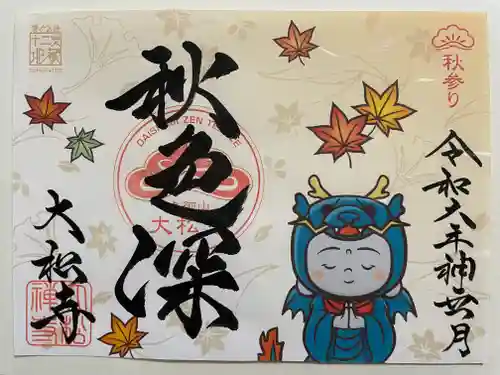 秋参り
令和六年神無月
秋色深
DAISHOJI ZEN TEMPLE
大松寺